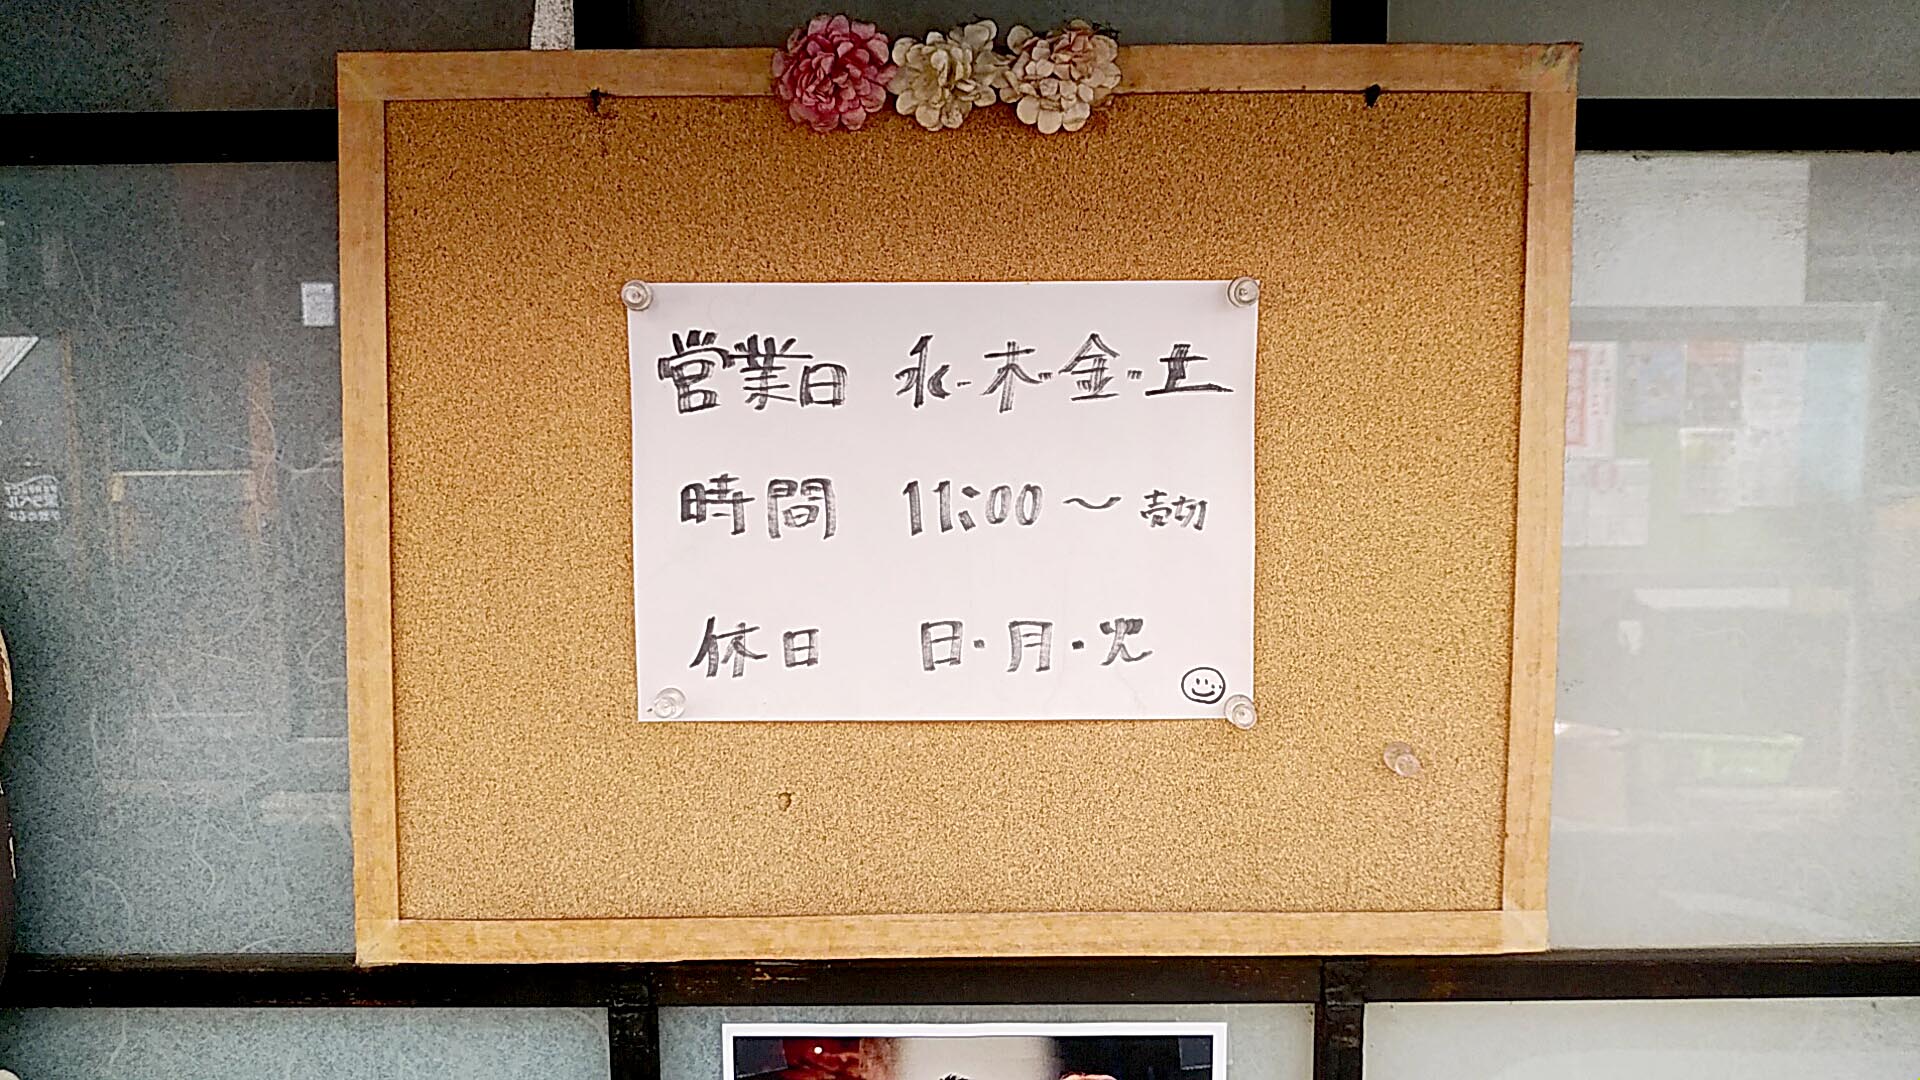 営業日 水・木・金・土
時間 11:00 〜 売切
休日 日・月・火